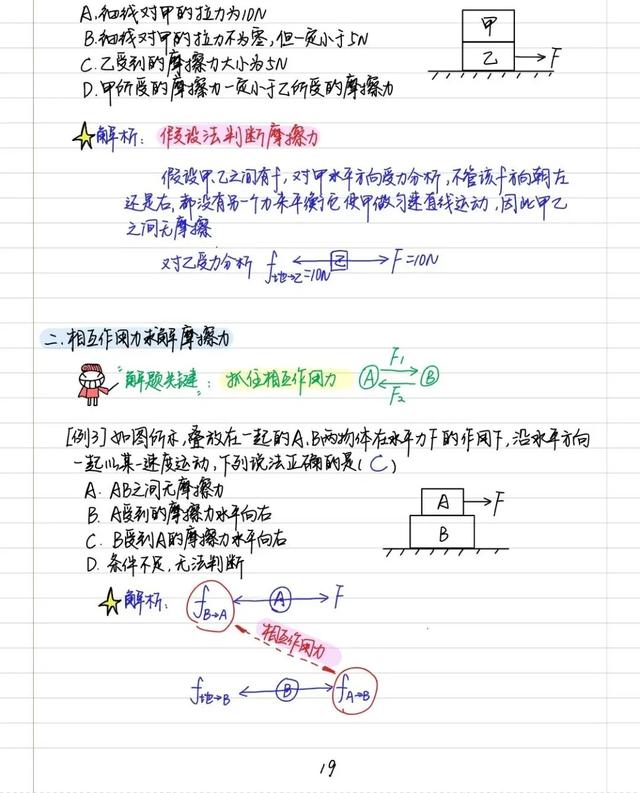 A.细线对甲的拉力为10N
B.细线对甲的拉力不为零,但一定小于5N
C.乙受到的摩擦力大小为5N
D.甲所受的摩擦力一定小于乙所受的摩擦力
甲
乙
F
解析: 假设法判断摩擦力
假设甲、乙之间有f,对甲水平方向受力分析,不管该f方向朝左
还是右,都没有另一个力来平衡它使甲做匀速直线运动,因此甲乙
之间无摩擦
对乙受力分析 f地→乙=10N 乙 F=10N
二.相互作用力求解摩擦力
"解题关键": 抓住相互作用力 A F1 F2 B
[例3]如图所示,叠放在一起的A、B两物体在水平力F的作用下,沿水平方向
一起以某一速度运动,下列说法正确的是(C)
A. AB之间无摩擦力
B. A受到的摩擦力水平向右
C. B受到A的摩擦力水平向右
D. 条件不足,无法判断
A
F
B
解析: fB→A A F
相互作用力
f地→B B fA→B
19